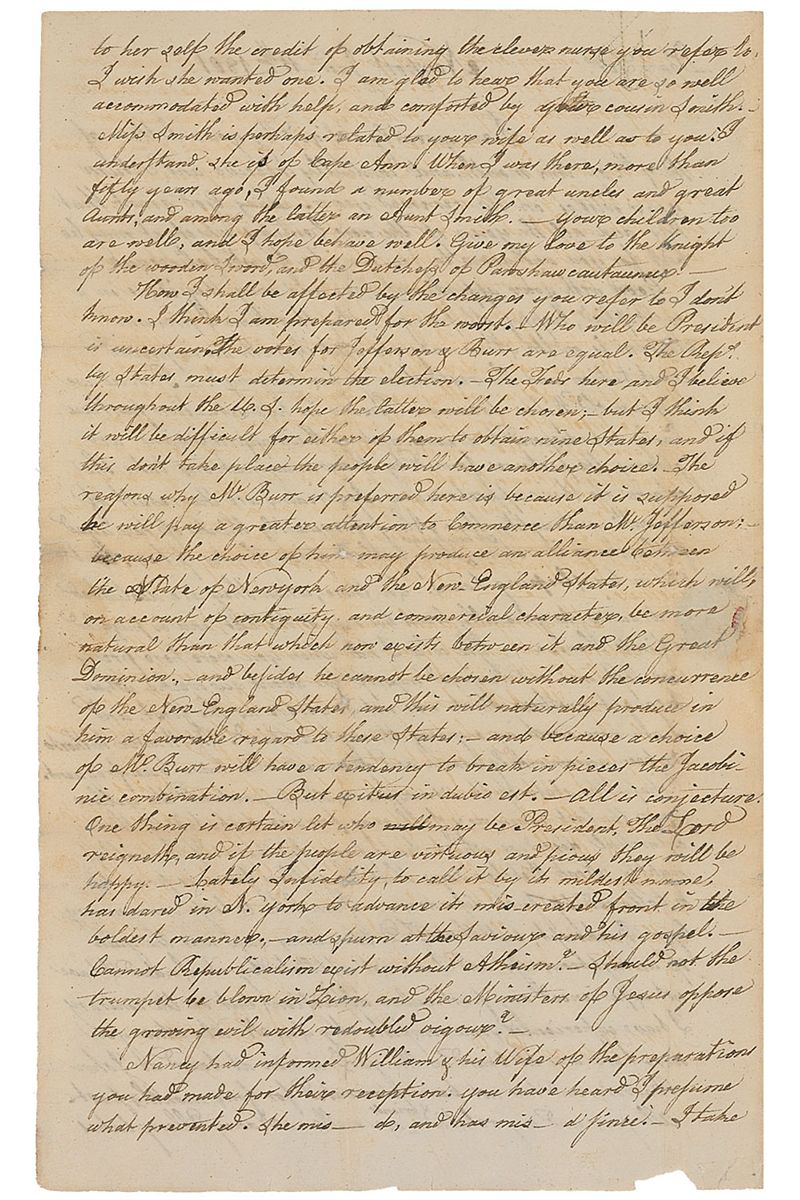 to her self the credit of obtaining the clever nurse you refer to.
I wish she wanted one. I am glad to hear that you are so well
accommodated with help, and comforted by your cousin Smith. –
Miss Smith is perhaps related to your wife as well as to you. I
understand she is of Cape Ann. When I was there, more than
fifty years ago, I found a number of great uncles and great
Aunts, and among the latter an Aunt Smith. – Your children too
are well, and I hope behave well. Give my love to the Knight
of the wooden sword, and the Dutchess of –
How I shall be affected by the changes you refer to I don't
know. I think I am prepared for the worst. – Who will be President
is uncertain. The votes for Jefferson & Burr are equal. The Reps.
by States must determin the election. – The Feds here and I believe
throughout the U. S. hope the latter will be chosen; – but I think
it will be difficult for either of them to obtain nine States, and if
this don't take place the people will have another choice. – The
reasons why Mr. Burr is preferred here is because it is supposed
he will pay a greater attention to Commerce than Mr. Jefferson; –
because the choice of him may produce an alliance between
the State of Newyork and the New England States, which will,
on account of contiguity and commercial character, be more
natural than that which now exists between it and the Great
Dominion., – and besides he cannot be chosen without the concurrence
of the New England States, and this will naturally produce in
him a favorable regard to these States; – and because a choice
of Mr. Burr will have a tendency to break in pieces the Jacobi-
nic combination. – But exitus in dubio est. – All is conjecture.
One thing is certain let who will may be President, The Lord
reigneth, and if the people are virtuous and pious they will be
happy. – Lately Infidelity, to call it by its mildest name,
has dared in N. york to advance its mis-created front in the
boldest manner, – and spurn at the Saviour and his gospel. –
Cannot Republicalism exist without Atheism? – Should not the
trumpet be blown in Zion, and the Ministers of Jesus oppose
the growing evil with redoubled vigour? –
Nancy had informed William & his Wife of the preparations
you had made for their reception. you have heard I presume
what prevented. She mis – d, and has mis – d since. – I take